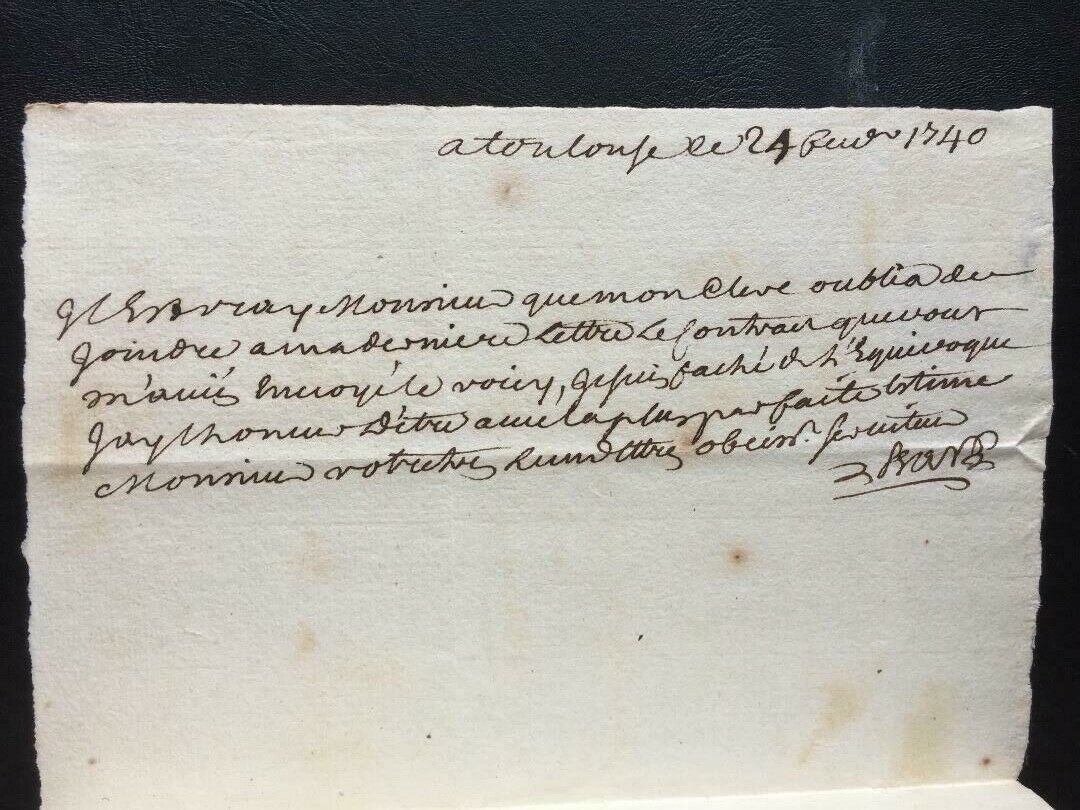 a toulouse le 24 fevr 1740
Il Est vray Monsieur que mon Clerc oublia de
joindre a ma derniere Lettre Le Contrat que vous
m'aviés Envoyé le voicy, je suis faché de l'Equivoque
J'ay lhoneur d'être avec la plus parfaite Estime
Monsieur votre tres humble et tres obeisst. serviteur